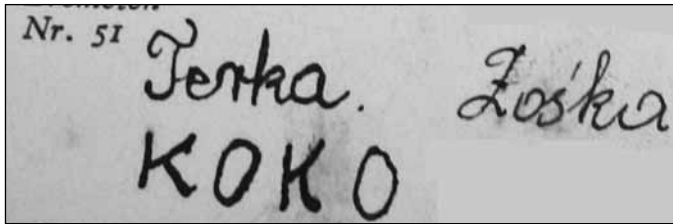 Nr. 51
Terka. Zośka
KOKO